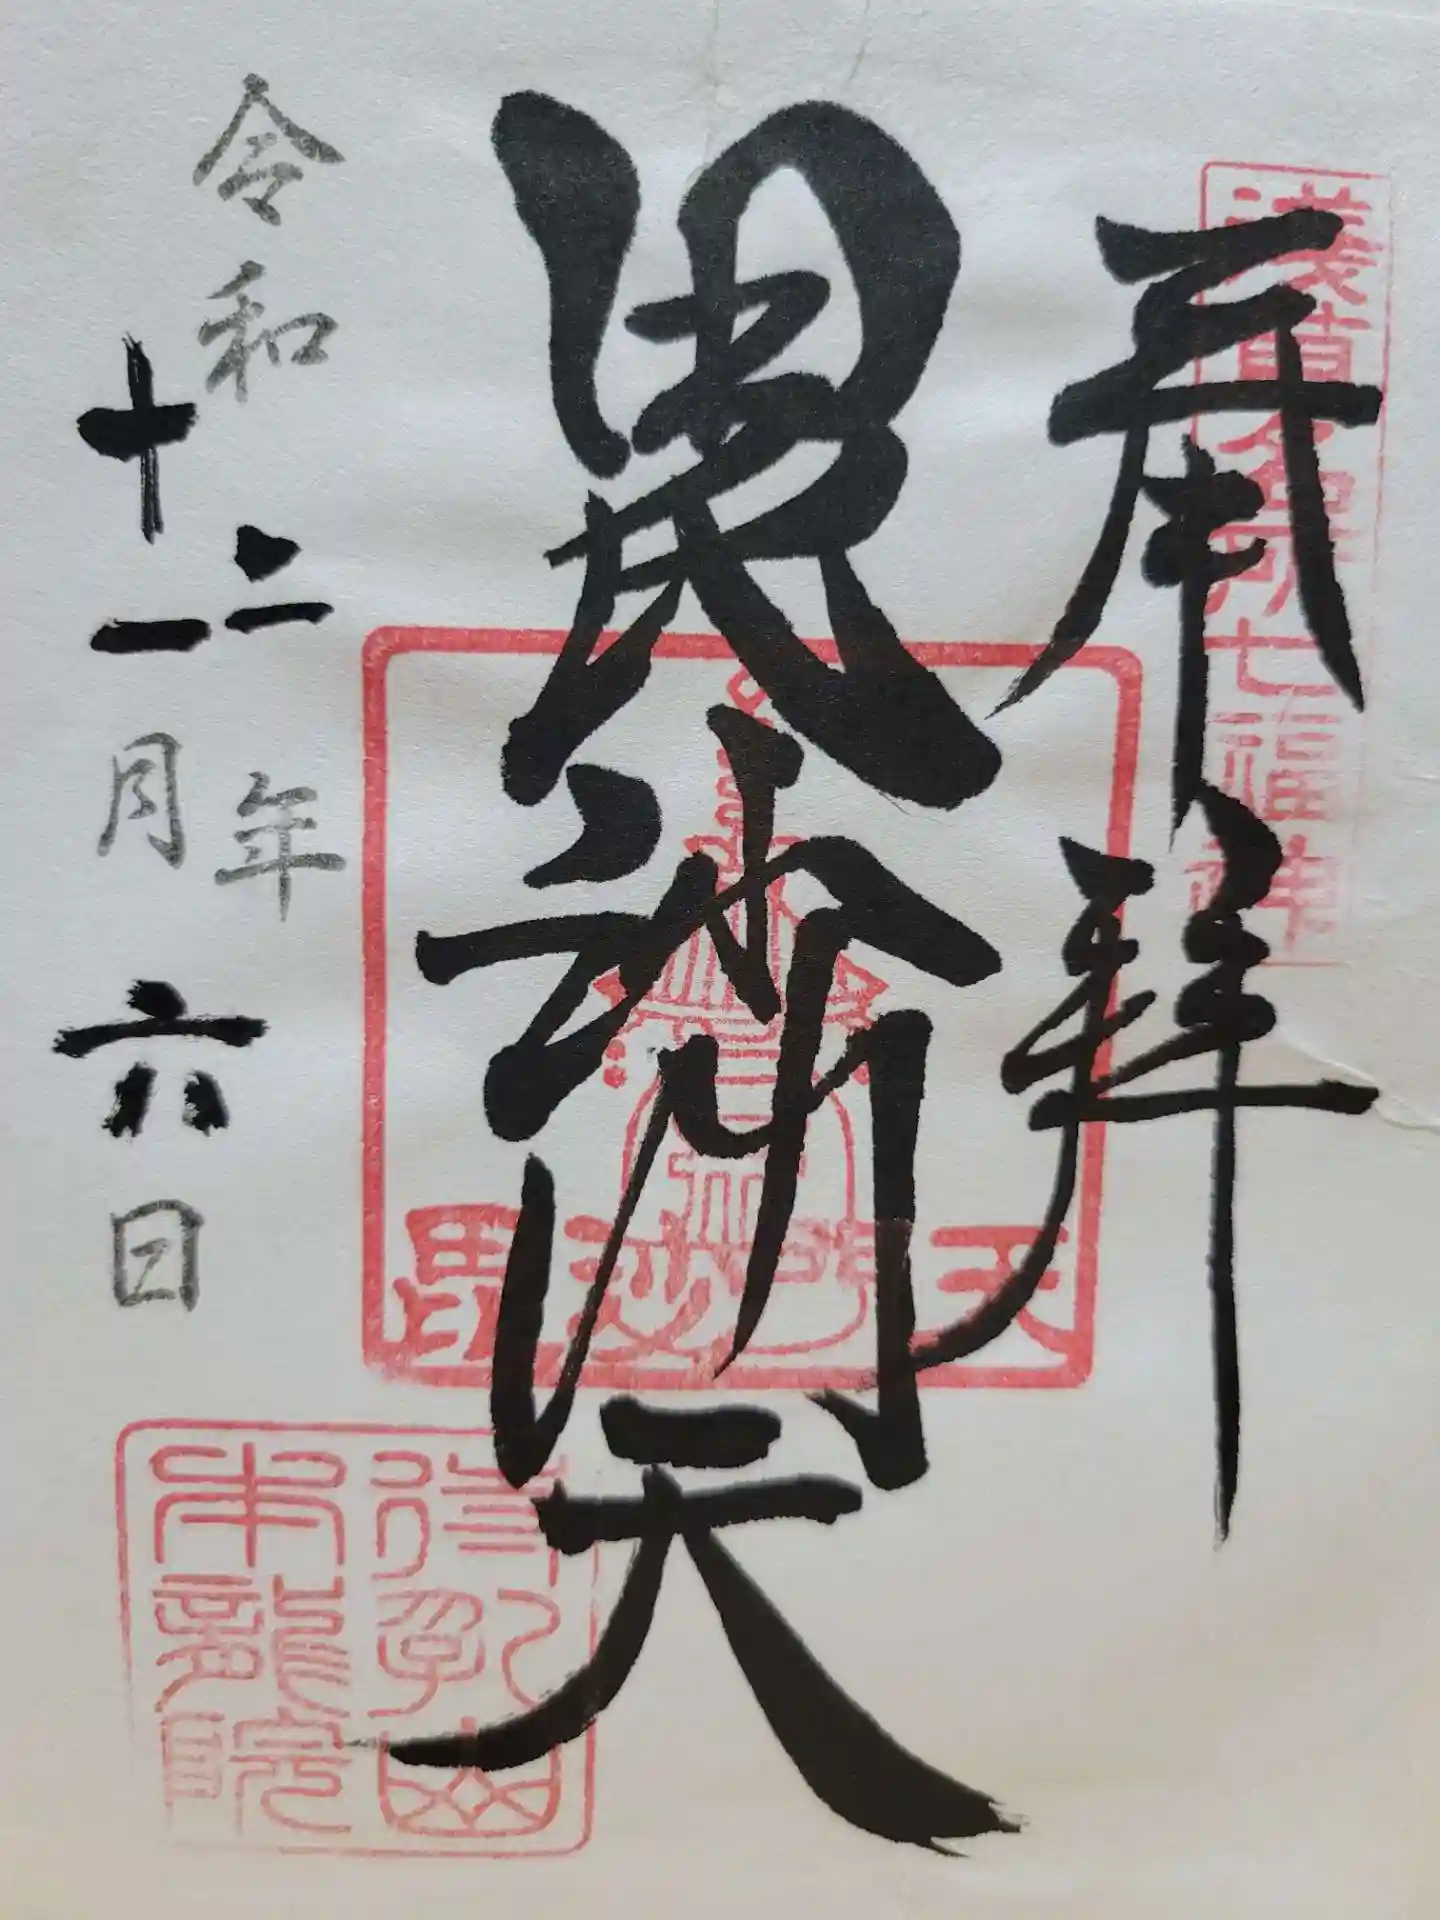 奉拝
浅草名所七福神
毘沙門天
毘沙門天
令和二年
十一月六日
待乳山
本龍院